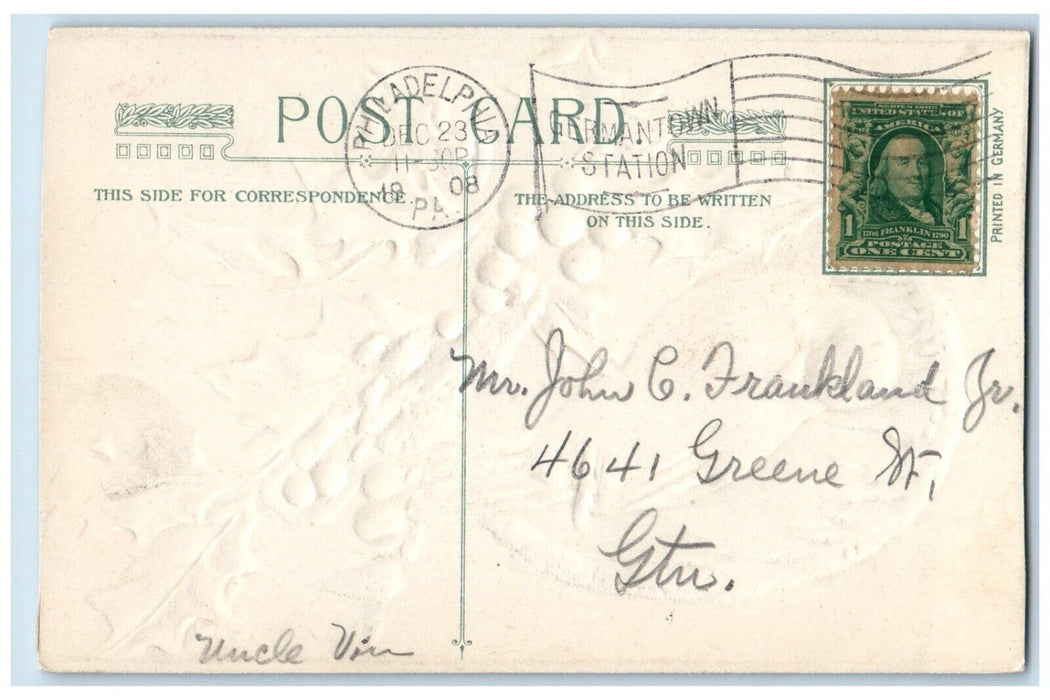 POST CARD.
PHILADELPHIA
DEC 23
11-30P
19 08
PA.
GERMANTOWN
STATION
THIS SIDE FOR CORRESPONDENCE
THE ADDRESS TO BE WRITTEN
ON THIS SIDE.
SERIES 1902
UNITED STATES OF
AMERICA
1706 FRANKLIN 1790
1 1
POSTAGE
ONE CENT
PRINTED IN GERMANY
Mr. John C. Frankland Jr.
4641 Greene St,
Gtn.
Uncle Vin